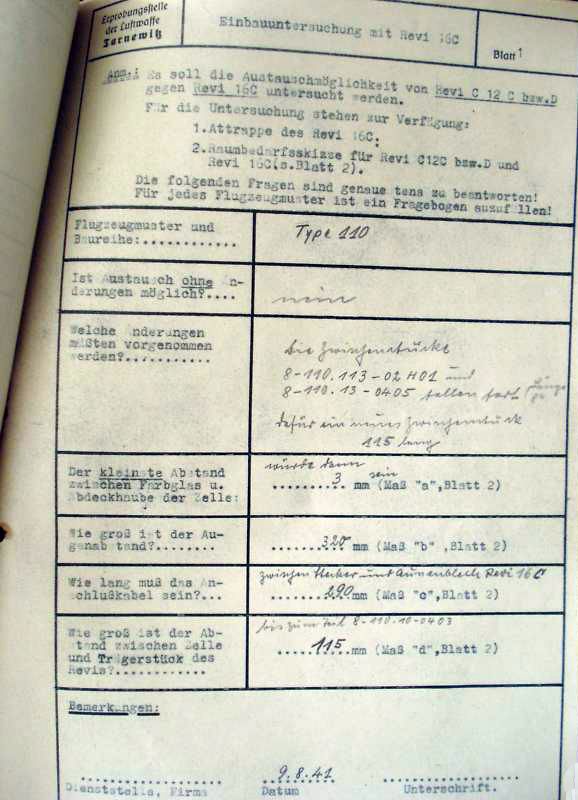 Erprobungsstelle
der Luftwaffe
Tarnewitz
Einbauuntersuchung mit Revi 16C
Blatt 1
Anm.: Es soll die Austauschmöglichkeit von Revi C 12 C bzw.D
gegen Revi 16C untersucht werden.
Für die Untersuchung stehen zur Verfügung:
1.Attrappe des Revi 16C;
2.Raumbedarfsskizze für Revi C12C bzw.D und
Revi 16C(s.Blatt 2).
Die folgenden Fragen sind genaue tens zu beantworten!
Für jedes Flugzeugmuster ist ein Fragebogen auszufüllen!
Flugzeugmuster und
Baureihe:............
Type 110
Ist Austausch ohne Än-
derungen möglich?....
nein
Welche Änderungen
müßten vorgenommen
werden?...........
Die Zwischenstücke
8-110.113-02 H01 und
8-110.13-0405 fallen fort
dafür ein neues Zwischenstück
115 lang
Der kleinste Abstand
zwischen Farbglas u.
Abdeckhaube der Zelle:
würde dann
sein
3 mm (Maß "a",Blatt 2)
Wie groß ist der Au-
genab tand?........
320 mm (Maß "b",Blatt 2)
Wie lang muß das An-
schlußkabel sein?...
zwischen Stecker und Revi 16 C
290 mm (Maß "c",Blatt 2)
Wie groß ist der Ab-
stand zwischen Zelle
und Trägerstück des
Revis?............
bis zum Teil 8-110.10-0403
115 mm (Maß "d",Blatt 2)
Bemerkungen:
9.8.41
Dienststelle, Firma
Datum
Unterschrift.